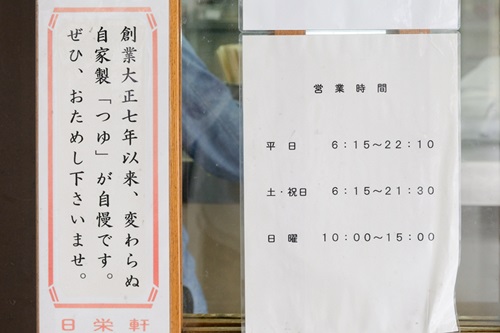 創業大正七年以来、変わらぬ
自家製「つゆ」が自慢です。
ぜひ、おためし下さいませ。
日栄軒
営業時間
平日 6:15～22:10
土・祝日 6:15～21:30
日曜 10:00～15:00